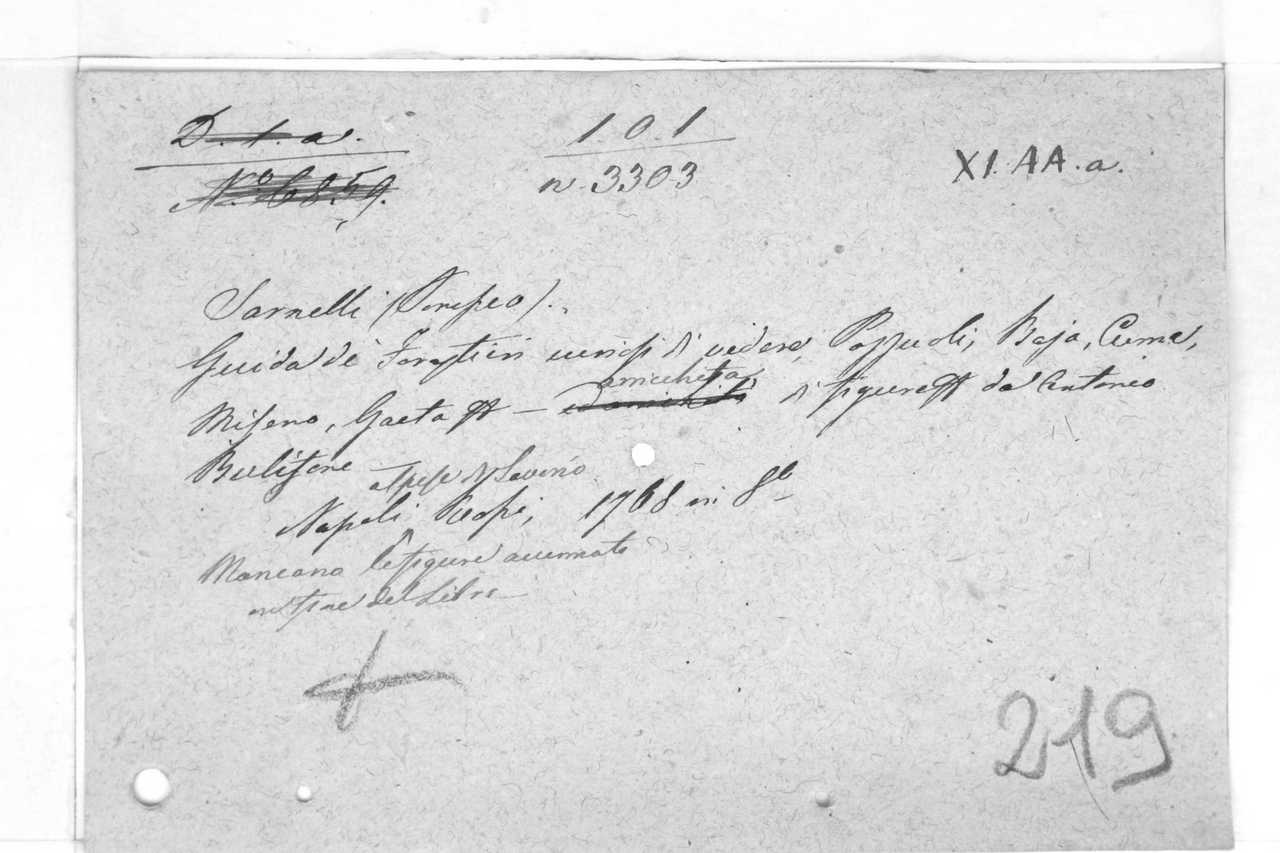 D. 1. a.
1.0.1
XI. AA. a.
N.º 6859.
n. 3303
Sarnelli (Pompeo).
Guida de' Forastieri curiosi di vedere, Pozzuoli, Baja, Cuma,
arricchita
Miseno, Gaeta - di figure da Antonio
Bulifone a spese di Saverio
Napoli, Rossi, 1768 in 8º
Mancano le figure accennate
in fine del Libro
219